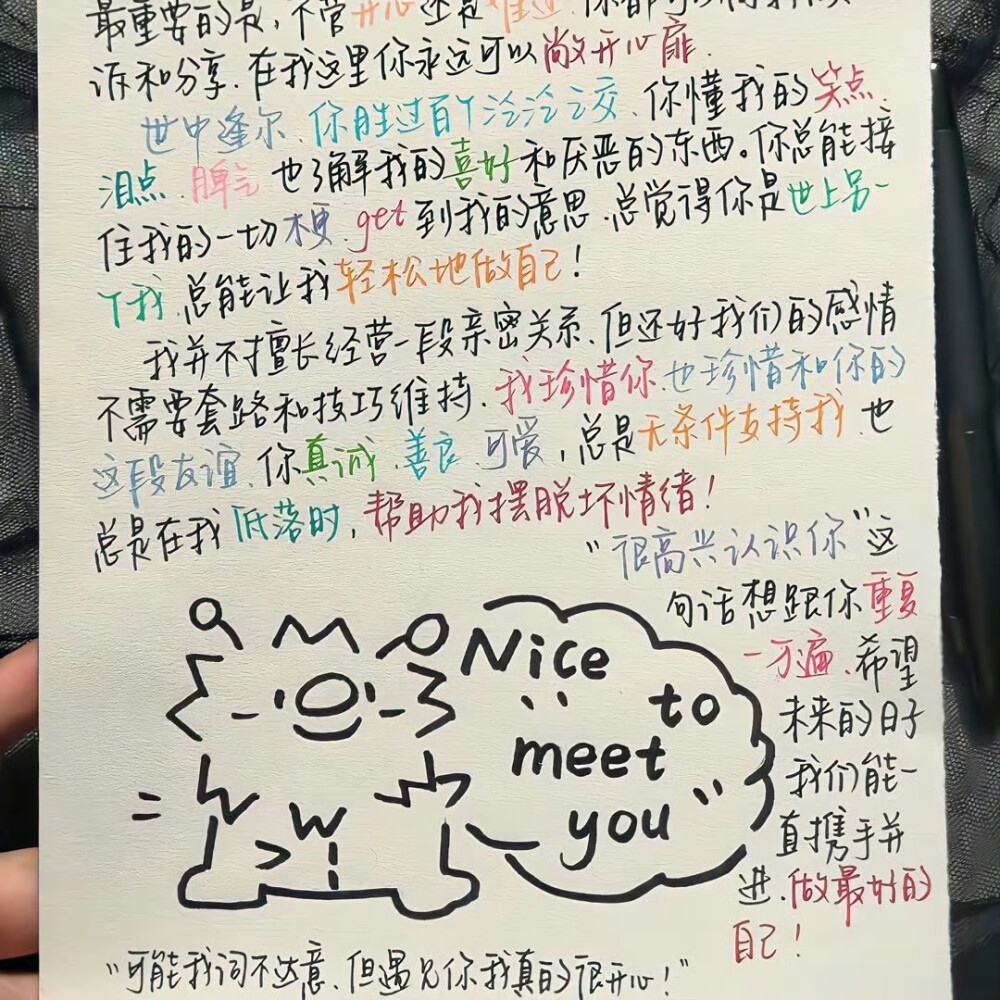 最重要的是,不管开心还是难过.你都可以向我倾
诉和分享.在我这里你永远可以敞开心扉.
世中逢尔.你胜过百个泛泛之交.你懂我的笑点.
泪点.脾气也了解我的喜好和厌恶的东西。你总能接
住我的一切梗.get到我的意思.总觉得你是世上另一
个我.总能让我轻松地做自己!
我并不擅长经营一段亲密关系.但还好我们的感情
不需要套路和技巧维持.我珍惜你.也珍惜和你的
这段友谊.你真诚.善良.可爱,总是无条件支持我.也
总是在我低落时,帮助我摆脱坏情绪!
"很高兴认识你"这
句话想跟你重复
一万遍.希望
未来的日子
我们能一
直携手并
进.做最好的
自己!
Nice
to
meet
you
"可能我词不达意.但遇见你我真的很开心!"